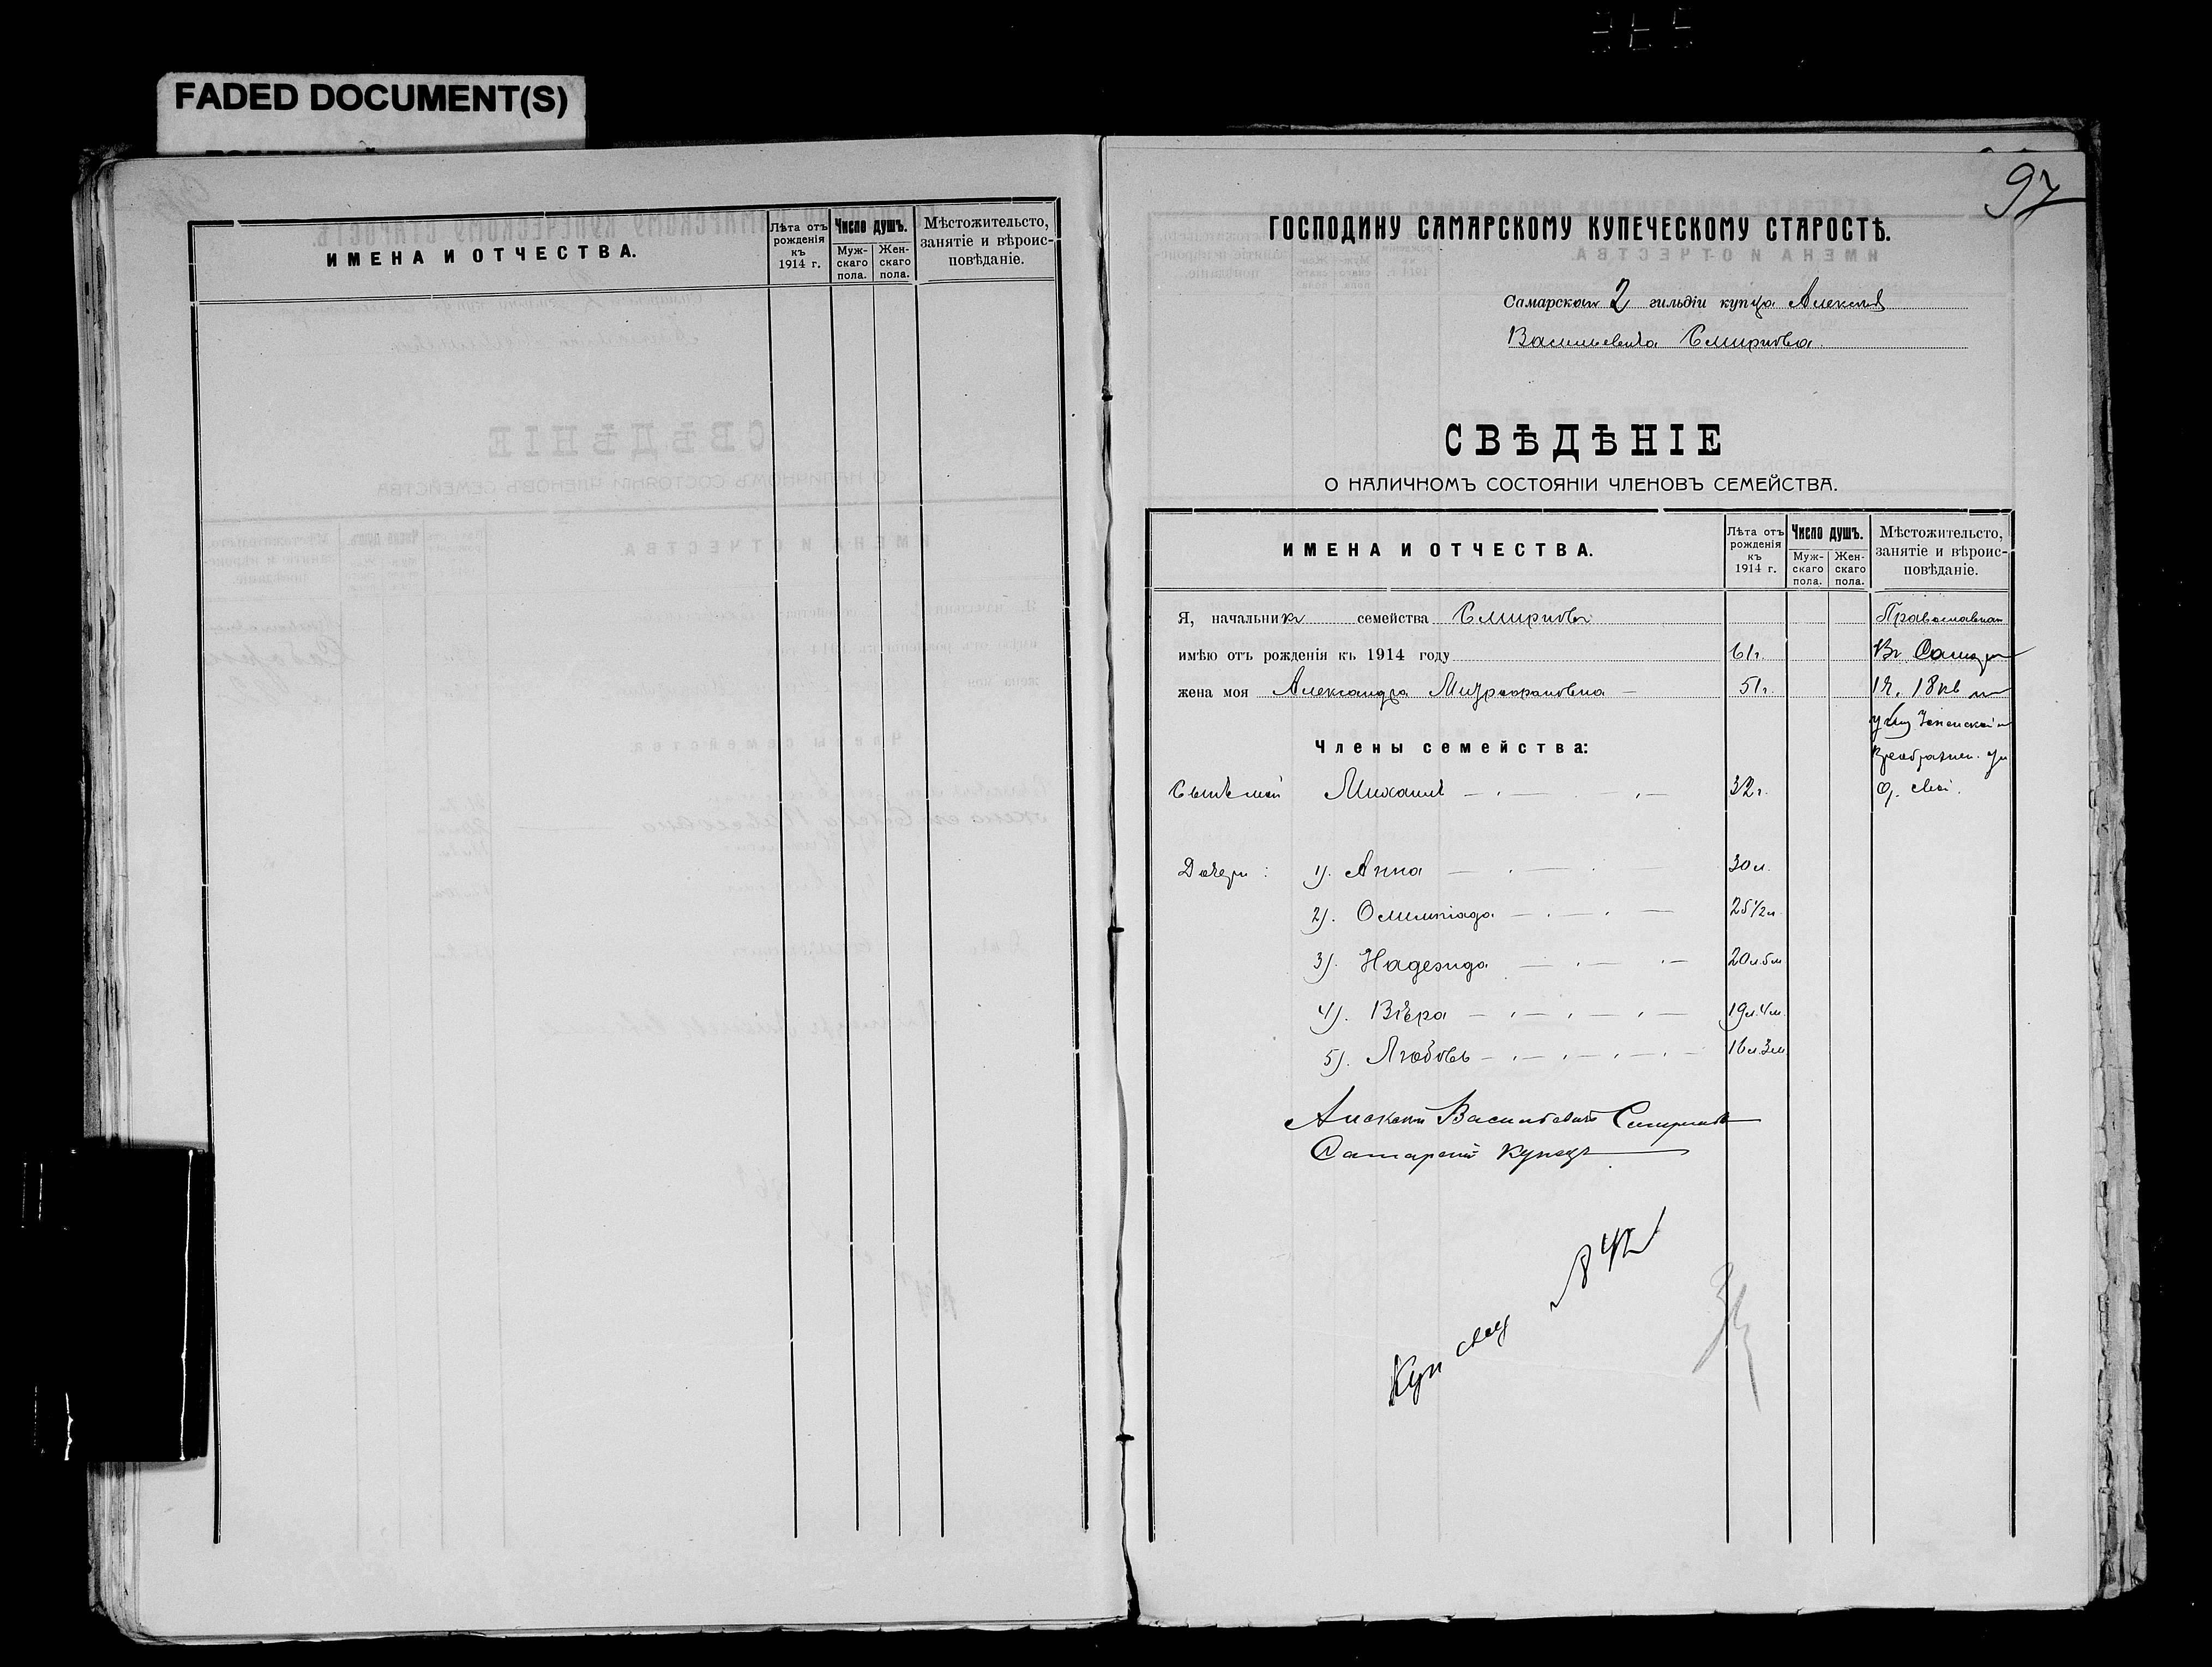 FADED DOCUMENT(S)
ИМЕНА И ОТЧЕСТВА.
Лѣта отъ рожденія къ 1914 г.
Число душъ.
Муж-скаго пола.
Жен-скаго пола.
Мѣстожительсто, занятіе и вѣроис-повѣданіе.
97
ГОСПОДИНУ САМАРСКОМУ КУПЕЧЕСКОМУ СТАРОСТѢ.
Самарскаго 2 гильдіи купца Алексѣя
Васильевича Смирнова.
СВѢДѢНІЕ
О НАЛИЧНОМЪ СОСТОЯНІИ ЧЛЕНОВЪ СЕМЕЙСТВА.
ИМЕНА И ОТЧЕСТВА.
Лѣта отъ рожденія къ 1914 г.
Число душъ.
Муж-скаго пола.
Жен-скаго пола.
Мѣстожительсто, занятіе и вѣроис-повѣданіе.
Я, начальникъ семейства Смирновъ Православная
имѣю отъ рожденія къ 1914 году 61г. Въ Самарѣ
жена моя Александра Митрофановна — 51г. 1ч. 18 кв
Члены семейства: Преображен. ул
Сынъ мой Михаилъ 32г. д. свой.
Дочери: 1). Анна 30 л.
2). Олимпіада 25 1/2 л
3). Надежда 20 л. 5 м
4). Вѣра 19 л. 4 м.
5). Любовь 16 л. 3 м
Алексѣй Васильевичъ Смирновъ
Самарскій Купецъ
Куп